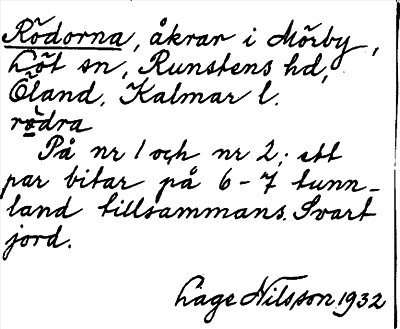 Rödorna, åkrar i Mörby,
Löt sn, Runstens hd,
Öland, Kalmar l.
rödra
På nr 1 och nr 2; ett
par bitar på 6-7 tunn-
land tillsammans. Svart
jord.
Låge Nilsson 1932